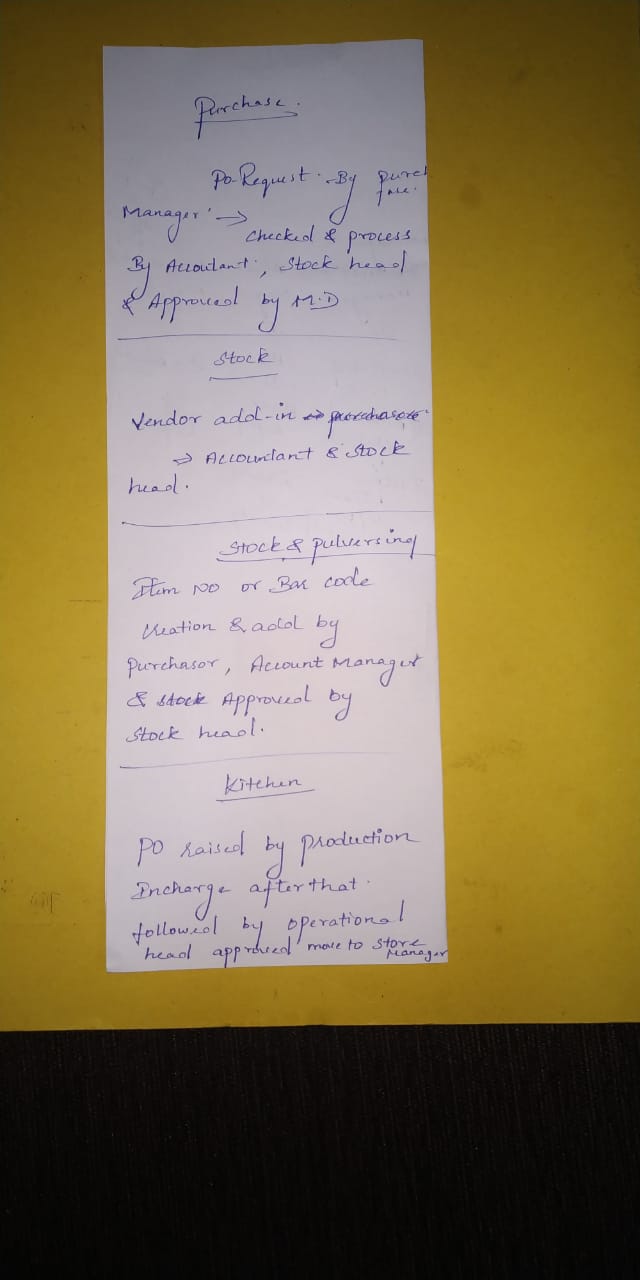 Purchase.
Po-Request. By purch
ase.
Manager →
checked & process
By Accoutant, Stock head
& Approved by M.D
Stock
Vendor add-in
→ Accountant & Stock
head.
Stock & pulversing
Item No or Bar code
creation & add by
purchasor, Account Manager
& stock Approved by
Stock head.
Kitchen
PO raised by production
Incharge after that.
followed by operational
head approved move to store
Manager